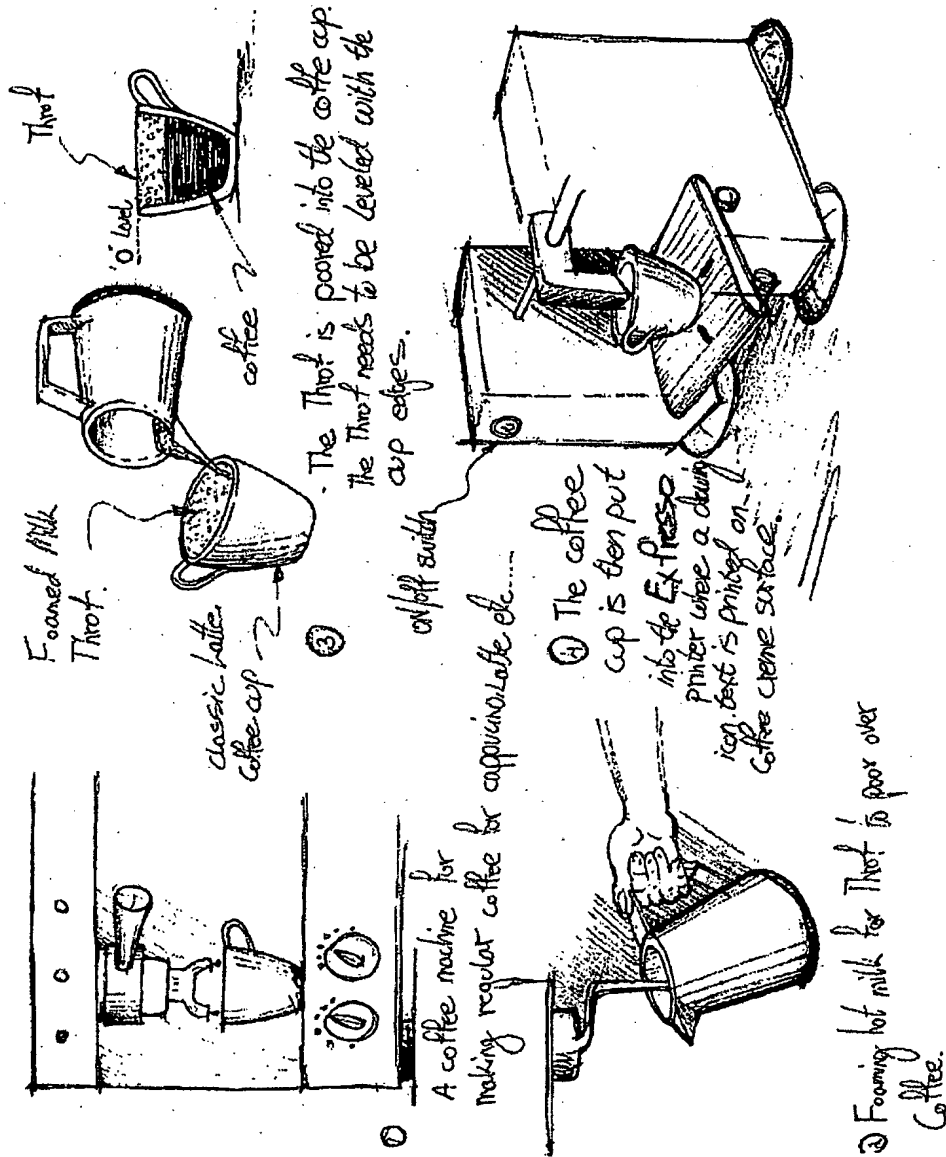 ①
A coffee machine for
making regular coffee for cappucino.Latte etc.....
② Foaming hot milk for Throf to poor over
Coffee.
Foamed Milk
Throf.
classic Latte
Coffee cup
③
'0' level
Throf
coffee
. The Throf is poored into the coffee cup.
The Throf needs to be leveled with the
cup edges.
on/off switch
④ The coffee
cup is then put
into the Expresso
printer where a drawing
icon.text is printed on
Coffee creme surface.